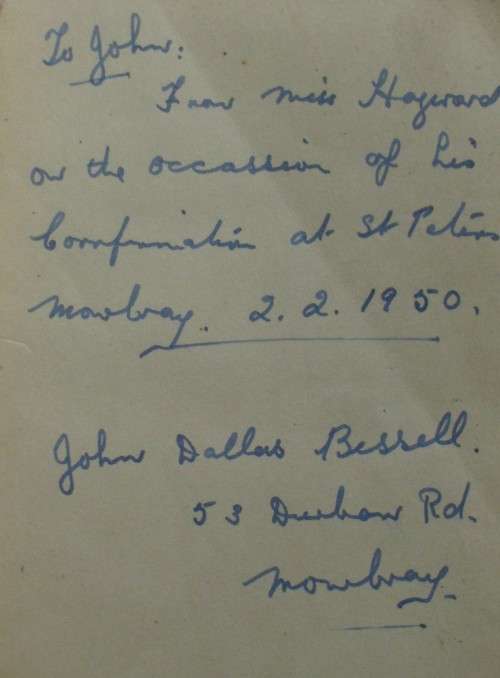 To John:
From Miss Hayward
on the occassion of his
Confirmation at St Peters
Mowbray. 2. 2. 1950.
John Dallas Bessell.
53 Durban Rd.
Mowbray.